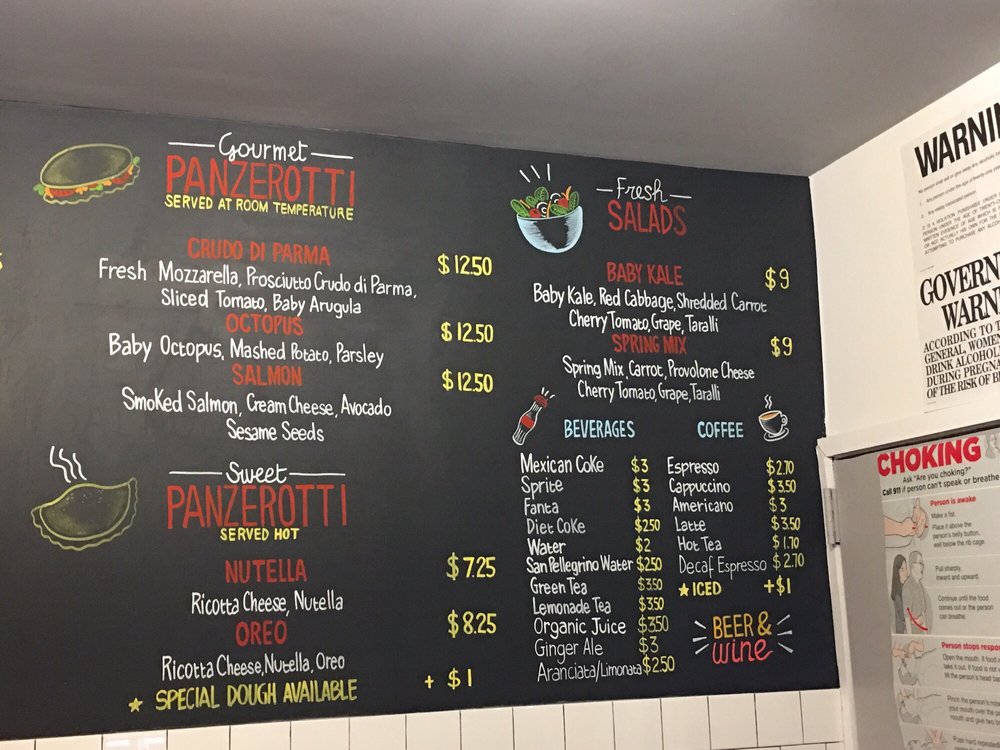 Gourmet
PANZEROTTI
SERVED AT ROOM TEMPERATURE
CRUDO DI PARMA $12.50
Fresh Mozzarella, Prosciutto Crudo di Parma,
Sliced Tomato, Baby Arugula
OCTOPUS $12.50
Baby Octopus, Mashed Potato, Parsley
SALMON $12.50
Smoked Salmon, Cream Cheese, Avocado
Sesame Seeds
Sweet
PANZEROTTI
SERVED HOT
NUTELLA $7.25
Ricotta Cheese, Nutella
OREO $8.25
Ricotta Cheese, Nutella, Oreo
★ SPECIAL DOUGH AVAILABLE + $1
Fresh
SALADS
BABY KALE $9
Baby Kale, Red Cabbage, Shredded Carrot
Cherry Tomato, Grape, Taralli
SPRING MIX $9
Spring Mix, Carrot, Provolone Cheese
Cherry Tomato, Grape, Taralli
BEVERAGES
Mexican Coke $3
Sprite $3
Fanta $3
Diet Coke $2.50
Water $2
San Pellegrino Water $2.50
Green Tea $3.50
Lemonade Tea $3.50
Organic Juice $3.50
Ginger Ale $3
Aranciata/Limonata $2.50
COFFEE
Espresso $2.70
Cappuccino $3.50
Americano $3
Latte $3.50
Hot Tea $1.70
Decaf Espresso $2.70
★ ICED +$1
BEER &
wine
WARNIN
GOVERN
WARN
ACCORDING TO T
GENERAL, WOMEN
DRINK ALCOHOL
DURING PREGNA
OF THE RISK OF B
CHOKING
Ask "Are you choking?"
Call 911 if person can't speak or breathe
Person is awake
Make a fist.
Place it above the
person's belly button,
well below the rib cage.
Pull sharply,
inward and upward.
Continue until the food
comes out or the person
can breathe.
Person stops respo
Open the mouth. If food
take it out. If food is not
till the person's head ba
Pinch the person's nose
your mouth over the
mouth and give two br
Push hard